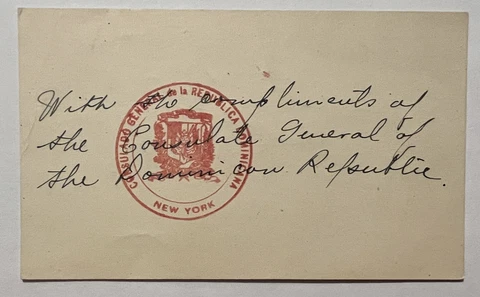 With the compliments of
the Consulate General of
the Dominican Republic.
CONSULADO GENERAL de la REPUBLICA DOMINICANA
NEW YORK